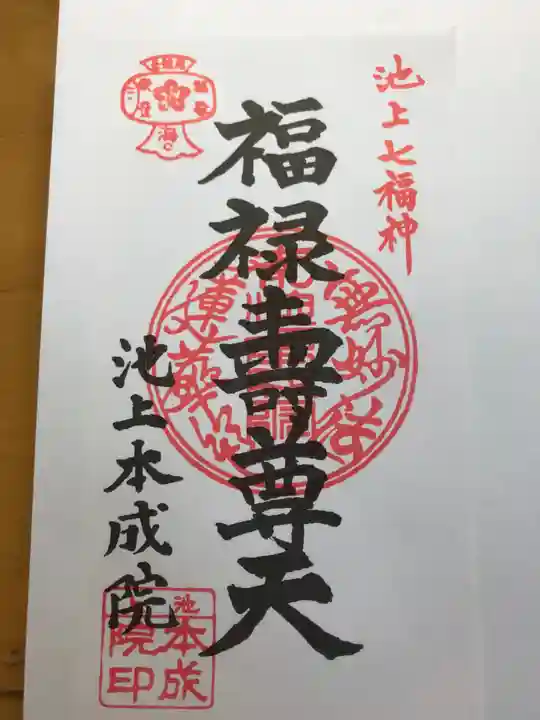 池上七福神
福禄壽尊天
池上本成院
池
本成
院印